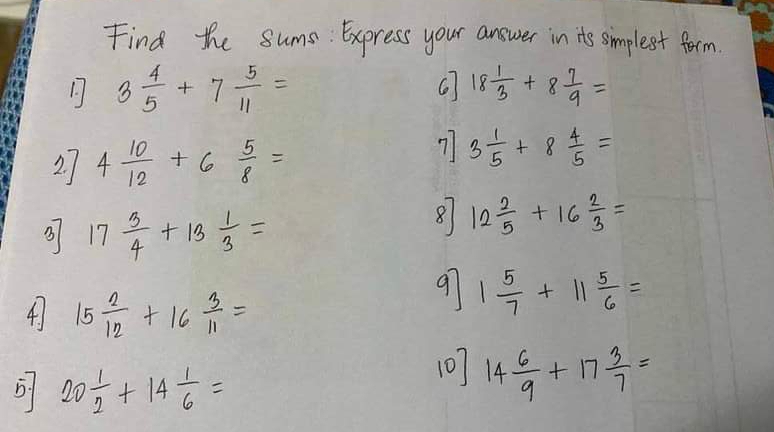 Find the sums : Express your answer in its simplest form.
1.] 3 4/5 + 7 5/11 =
2.] 4 10/12 + 6 5/8 =
3] 17 3/4 + 13 1/3 =
4.] 15 2/12 + 16 3/11 =
5.] 20 1/2 + 14 1/6 =
6] 18 1/3 + 8 7/9 =
7] 3 1/5 + 8 4/5 =
8] 12 2/5 + 16 2/3 =
9] 1 5/7 + 11 5/6 =
10] 14 6/9 + 17 3/7 =